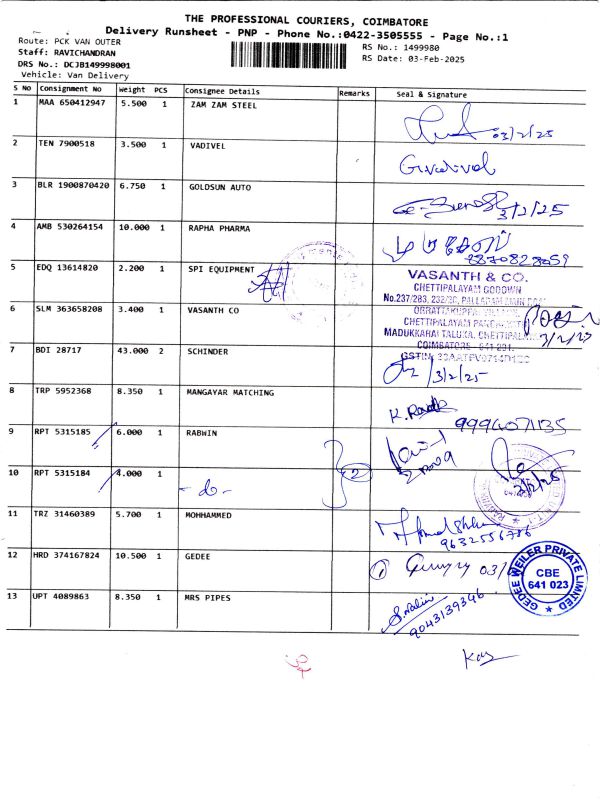 THE PROFESSIONAL COURIERS, COIMBATORE
Delivery Runsheet - PNP - Phone No.:0422-3505555 - Page No.:1
Route: PCK VAN OUTER
Staff: RAVICHANDRAN
DRS No.: DCJB149998001
Vehicle: Van Delivery
RS No.: 1499980
RS Date: 03-Feb-2025
S No Consignment No Weight PCS Consignee Details Remarks Seal & Signature
1 MAA 650412947 5.500 1 ZAM ZAM STEEL
03/2/25
2 TEN 7900518 3.500 1 VADIVEL
3 BLR 1900870420 6.750 1 GOLDSUN AUTO
3/2/25
4 AMB 530264154 10.000 1 RAPHA PHARMA
5 EDQ 13614820 2.200 1 SPI EQUIPMENT
VASANTH & CO.
CHETTIPALAYAM GODOWN
6 SLM 363658208 3.400 1 VASANTH CO
MADUKKARAI TALUKA, CHETTIPALAYAM
COIMBATORE
3/2/25
7 BDI 28717 43.000 2 SCHINDER
3/2/25
8 TRP 5952368 8.350 1 MANGAYAR MATCHING
9994071135
9 RPT 5315185 6.000 1 RABWIN
10 RPT 5315184 4.000 1 - do -
2
3/2/25
11 TRZ 31460389 5.700 1 MOHHAMMED
9632556786
12 HRD 374167824 10.500 1 GEDEE
03/
GEDEE WEILER PRIVATE LIMITED
CBE
641 023
13 UPT 4089863 8.350 1 MRS PIPES
9043139346